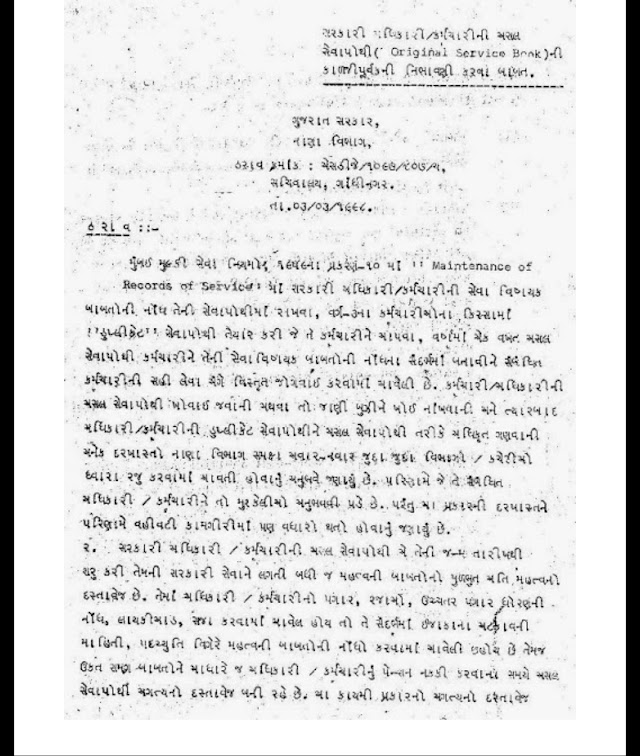 સરકારી અધિકારી/કર્મચારીની અસલ
સેવાપોથી( Original Service Book)ની
કાળજીપૂર્વકની નિભાવણી કરવા બાબત.
ગુજરાત સરકાર,
નાણા વિભાગ,
ઠરાવ ક્રમાંક :
સચિવાલય, ગાંધીનગર.
તા.૦૩/૦૩/૧૯૯૮.
ઠરાવ ::-
મુંબઈ મુલ્કી સેવા નિયમોનુ ૧૯૫૯ના પ્રકરણ-૧૦ માં '' Maintenance of
Records of Service'' માં સરકારી અધિકારી/કર્મચારીની સેવા વિષયક
બાબતોની નોંધ તેની સેવાપોથીમાં રાખવા, વર્ગ-૩ના કર્મચારીઓના કિસ્સામાં
''ડુપ્લીકેટ'' સેવાપોથી તૈયાર કરી જે તે કર્મચારીને આપવા, વર્ષમાં એક વખત અસલ
સેવાપોથી કર્મચારીને તેની સેવાવિષયક બાબતોની નોંધના સંદર્ભમાં બતાવીને સંબંધિત
કર્મચારીની સહી લેવા અંગે વિસ્તૃત જોગવાઈ કરવામાં આવેલી છે. કર્મચારી/અધિકારીની
અસલ સેવાપોથી ખોવાઈ જવાની અથવા તો જાણી બુઝીને ખોઈ નાંખવાની અને ત્યારબાદ
અધિકારી/કર્મચારીની ડુપ્લીકેટ સેવાપોથીને અસલ સેવાપોથી તરીકે અધિકૃત ગણવાની
અનેક દરખાસ્તો નાણા વિભાગ સમક્ષ અવાર-નવાર જુદા જુદા વિભાગો / કચેરીઓ
ધ્વારા રજુ કરવામાં આવતી હોવાનું અનુભવે જણાયું છે. પરિણામે જે તે સંબંધિત
અધિકારી / કર્મચારીને તો મુશ્કેલીઓ અનુભવવી પડે છે. પરંતુ આ પ્રકારની દરખાસ્તને
પરિણામે વહીવટી કામગીરીમાં પણ વધારો થતો હોવાનું જણાયું છે.
૨. સરકારી અધિકારી / કર્મચારીની અસલ સેવાપોથી એ તેની જન્મ તારીખથી
શરુ કરી તેમની સરકારી સેવાને લગતી બધી જ મહત્વની બાબતોનો મુળભુત અતિ મહત્વનો
દસ્તાવેજ છે. તેમાં અધિકારી / કર્મચારીનો પગાર, રજાઓ, ઉચ્ચતર પગાર ધોરણની
નોંધ, લાયકીઆડ, સજા કરવામાં આવેલ હોય તો તે સંદર્ભમાં ઈજાફાના અટકાવની
માહિતી, પદચ્યુતિ વિગેરે મહત્વની બાબતોની નોંધો કરવામાં આવેલી હોય છે તેમજ
ઉકત સમગ્ર બાબતોને આધારે જ અધિકારી / કર્મચારીનું પેન્શન નકકી કરવાના સમયે અસલ
સેવાપોથી અગત્યનો દસ્તાવેજ બની રહે છે. આ કાયમી પ્રકારનો અગત્યનો દસ્તાવેજ